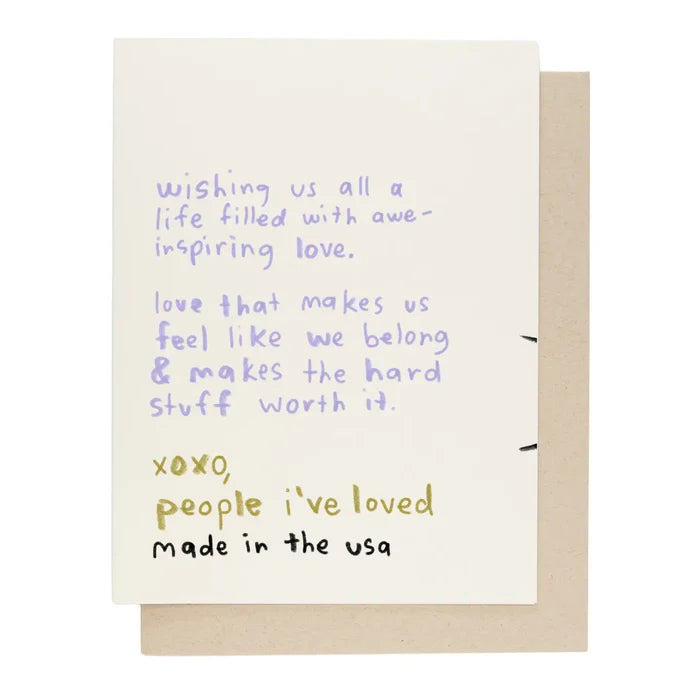 wishing us all a
life filled with awe-
inspiring love.
love that makes us
feel like we belong
& makes the hard
stuff worth it.
xoxo,
people i've loved
made in the usa